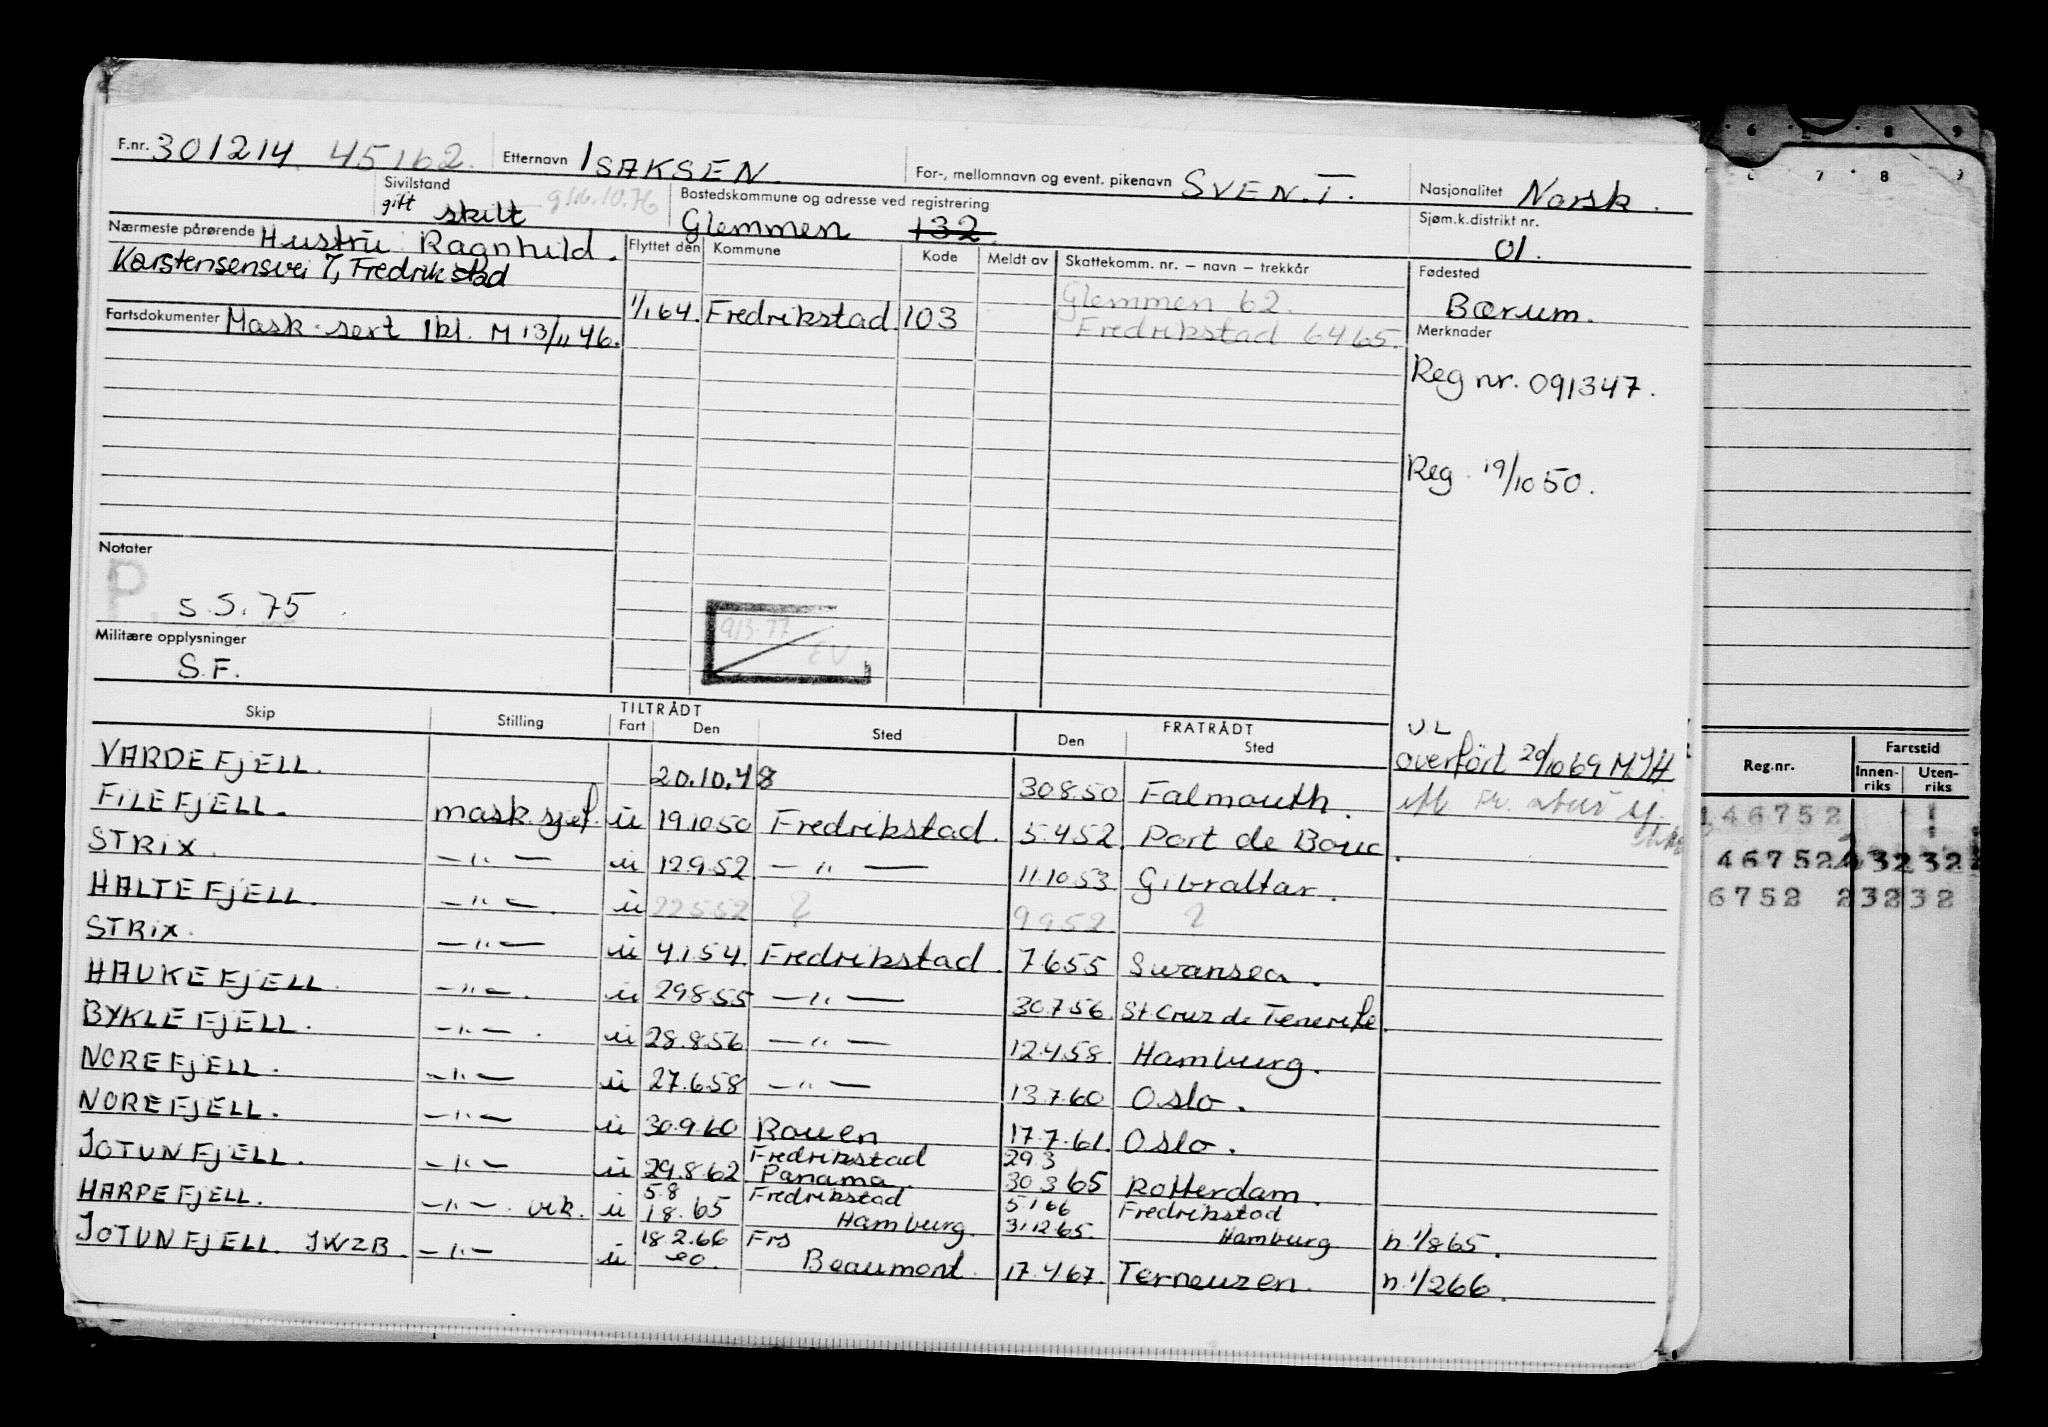 F.nr. 301214 45162. Etternavn ISAKSEN For-, mellomnavn og event. pikenavn SVEN.T. Nasjonalitet Norsk.
Sivilstand gift skilt Bostedskommune og adresse ved registrering Glemmen 132 Sjøm.k.distrikt nr. 01.
Nærmeste pårørende Hustru Ragnhild.
Karstensensvei 7, Fredrikstad
Flyttet den Kommune Kode Meldt av Skattekomm. nr. – navn – trekkår Fødested
Glemmen 62. Bærum.
Fartsdokumenter Mask.sert 1kl. M 13/11 46. 1/1 64. Fredrikstad 103 Fredrikstad 64 65. Merknader
Reg nr. 091347.
Reg. 19/10 50.
Notater
P.
s.s. 75
Militære opplysninger
S.F.
Skip Stilling TILTRÅDT Fart Den Sted FRATRÅDT Den Sted
overført 29/10 69 MJH
VARDEFJELL. 20.10.48 30.8.50 Falmouth.
FILEFJELL. mask.sjef. u 19.10 50 Fredrikstad. 5.4 52. Port de Bouc.
STRIX. —"— u 12.9.52 —"— 11.10 53 Gibraltar.
HALTEFJELL. —"—. u 22 5 52 ? 9 9 52 ?
STRIX. —"— u 4.1.54. Fredrikstad. 7.6 55 Swansea.
HAUKEFJELL. —"—. u 29.8.55 —"— 30.7.56. St. Cruz de Tenerife.
BYKLEFJELL. —"—. u 28.8.56 —"— 12.4.58. Hamburg.
NOREFJELL. —"— u 27.6.58 —"— 13.7.60 Oslo.
NOREFJELL. —"— u 30.9.60 Rouen 17.7.61. Oslo.
JOTUNFJELL. —"— u 29.8.62 Fredrikstad Panama. 29.3 30 3 65 Rotterdam.
HARPEFJELL. —"—. vik. u 5.8 1.8.65 Fredrikstad Hamburg. 5.1 66 31.12.65. Fredrikstad Hamburg n. 1/8 65.
JOTUNFJELL. JWZB. —"— u 18.2.66 20. Frs Beaumont. 17.4 67. Terneuzen. n. 1/2 66.
6 8 9
6 7 8 9
Reg.nr. Fartstid
Innenriks Utenriks
146752
46752
6752 23232